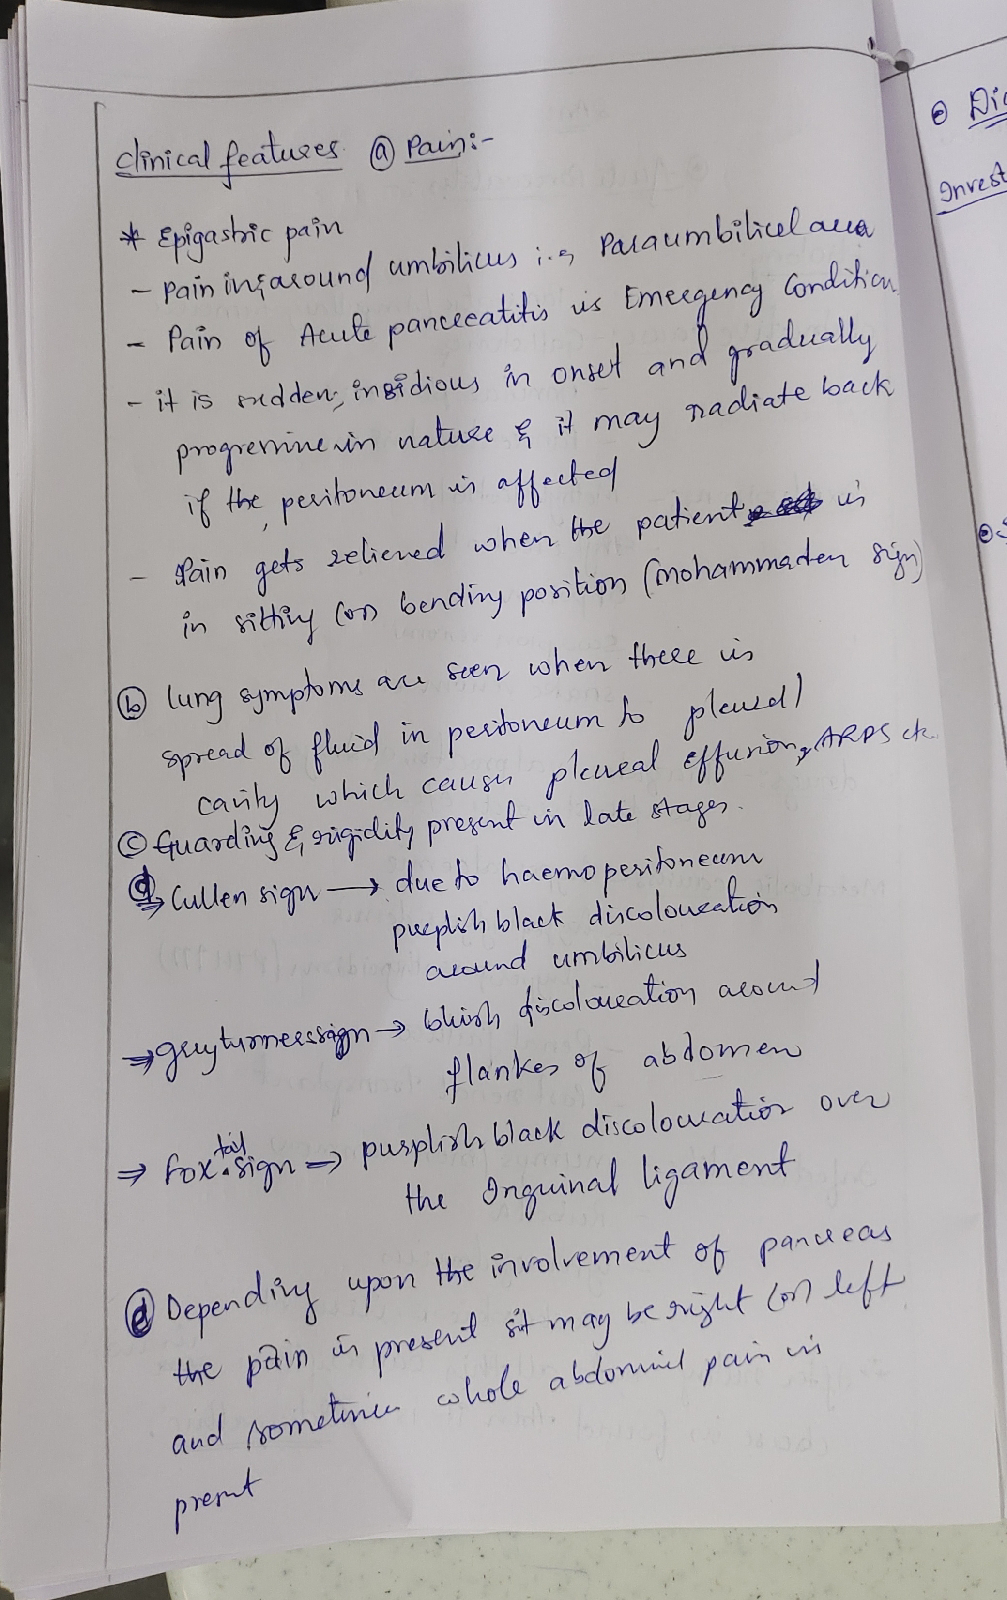 clinical features ⓐ Pain:-
* Epigastric pain
- Pain in & around umbilicus i.e, Paraumbilical area
- Pain of Acute pancreatitis is Emergency Condition
- it is sudden, insidious in onset and gradually
progressive in nature & it may radiate back
if the, peritoneum is affected
- Pain gets relieved when the patient is
in sitting (or) bending position (Mohammaden sign)
ⓑ lung symptoms are seen when there is
spread of fluid in peritoneum to pleural
cavity which causes pleural effusion, ARDS etc.
ⓒ Guarding & rigidity present in late stages.
ⓓ Cullen sign → due to haemoperitoneum
purplish black discolouration
around umbilicus
⇒ grey turners sign → bluish discolouration around
flankes of abdomen
⇒ Fox tail sign ⇒ purplish black discolouration over
the Inguinal ligament
ⓔ Depending upon the involvement of pancreas
the pain is present it may be right (or) left
and sometimes whole abdominal pain is
present
⊙ Dia
Invest